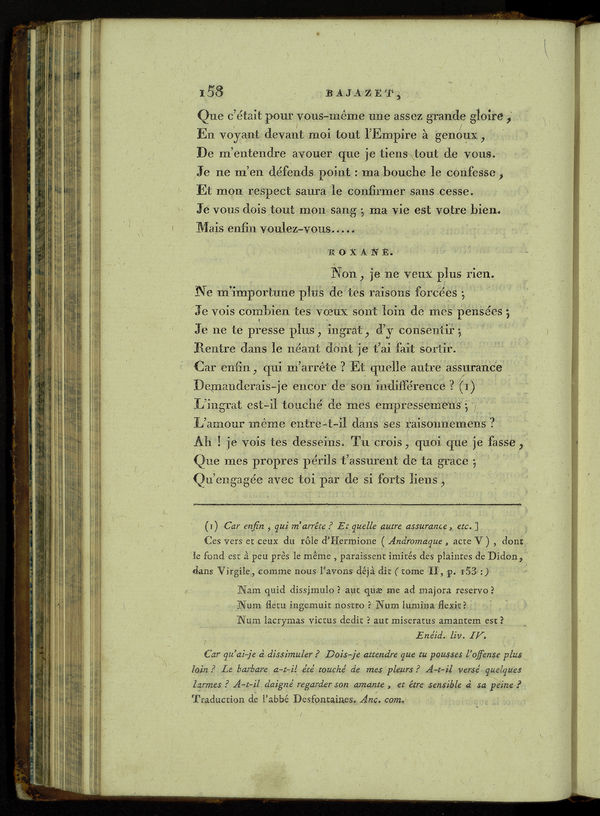 158 BAJAZET,
Que c'était pour vous-même une assez grande gloire,
En voyant devant moi tout l'Empire à genoux,
De m'entendre avouer que je tiens tout de vous.
Je ne m'en défends point : ma bouche le confesse,
Et mon respect saura le confirmer sans cesse.
Je vous dois tout mon sang ; ma vie est votre bien.
Mais enfin voulez-vous.....
ROXANE.
Non, je ne veux plus rien.
Ne m'importune plus de tes raisons forcées ;
Je vois combien tes vœux sont loin de mes pensées ;
Je ne te presse plus, ingrat, d'y consentir ;
Rentre dans le néant dont je t'ai fait sortir.
Car enfin, qui m'arrête ? Et quelle autre assurance
Demanderais-je encor de son indifférence ? (1)
L'ingrat est-il touché de mes empressemens ;
L'amour même entre-t-il dans ses raisonnemens ?
Ah ! je vois tes desseins. Tu crois, quoi que je fasse,
Que mes propres périls t'assurent de ta grace ;
Qu'engagée avec toi par de si forts liens,
(1) Car enfin, qui m'arrête ? Et quelle autre assurance, etc. ]
Ces vers et ceux du rôle d'Hermione ( Andromaque, acte V ), dont
le fond est à peu près le même, paraissent imités des plaintes de Didon,
dans Virgile, comme nous l'avons déjà dit ( tome II, p. 153 : )
Nam quid dissimulo ? aut quæ me ad majora reservo ?
Num fletu ingemuit nostro ? Num lumina flexit ?
Num lacrymas victus dedit ? aut miseratus amantem est ?
Enéid. liv. IV.
Car qu'ai-je à dissimuler ? Dois-je attendre que tu pousses l'offense plus
loin ? Le barbare a-t-il été touché de mes pleurs ? A-t-il versé quelques
larmes ? A-t-il daigné regarder son amante, et être sensible à sa peine ?
Traduction de l'abbé Desfontaines. Anc. com.